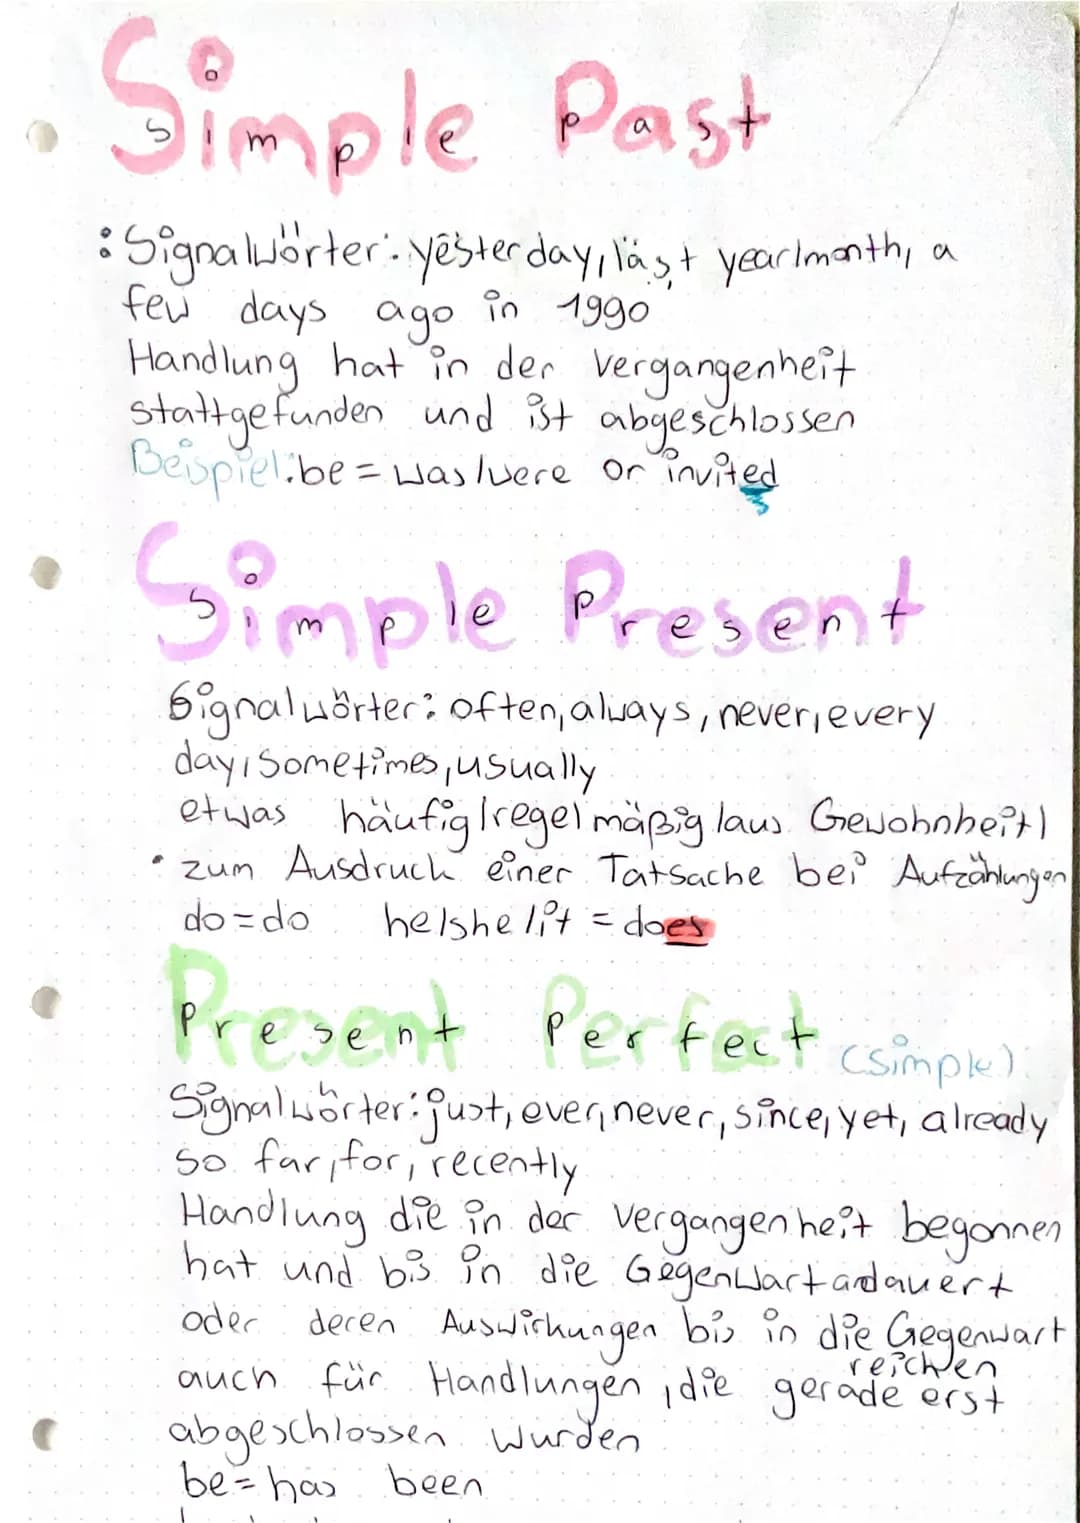 Simple Past
: Signalwörter: yesterday, last year/month, a
few days ago in 1990
Handlung hat in der Vergangenheit
stattgefunden und ist abgeschlossen
Beispiel: be = was/were or invited
Simple Present
Signalwörter: often, always, never, every
day, sometimes, usually
etwas häufig/regelmäßig/aus Gewohnheit/
• zum Ausdruck einer Tatsache bei Aufzählungen
do = do he/she/it = does
Present Perfect (simple)
Signalwörter: just, ever, never, since, yet, already
so far, for, recently
Handlung die in der Vergangenheit begonnen
hat und bis in die Gegenwart andauert
oder deren Auswirkungen bis in die Gegenwart
reichen
auch für Handlungen, die gerade erst
abgeschlossen wurden
be = has been